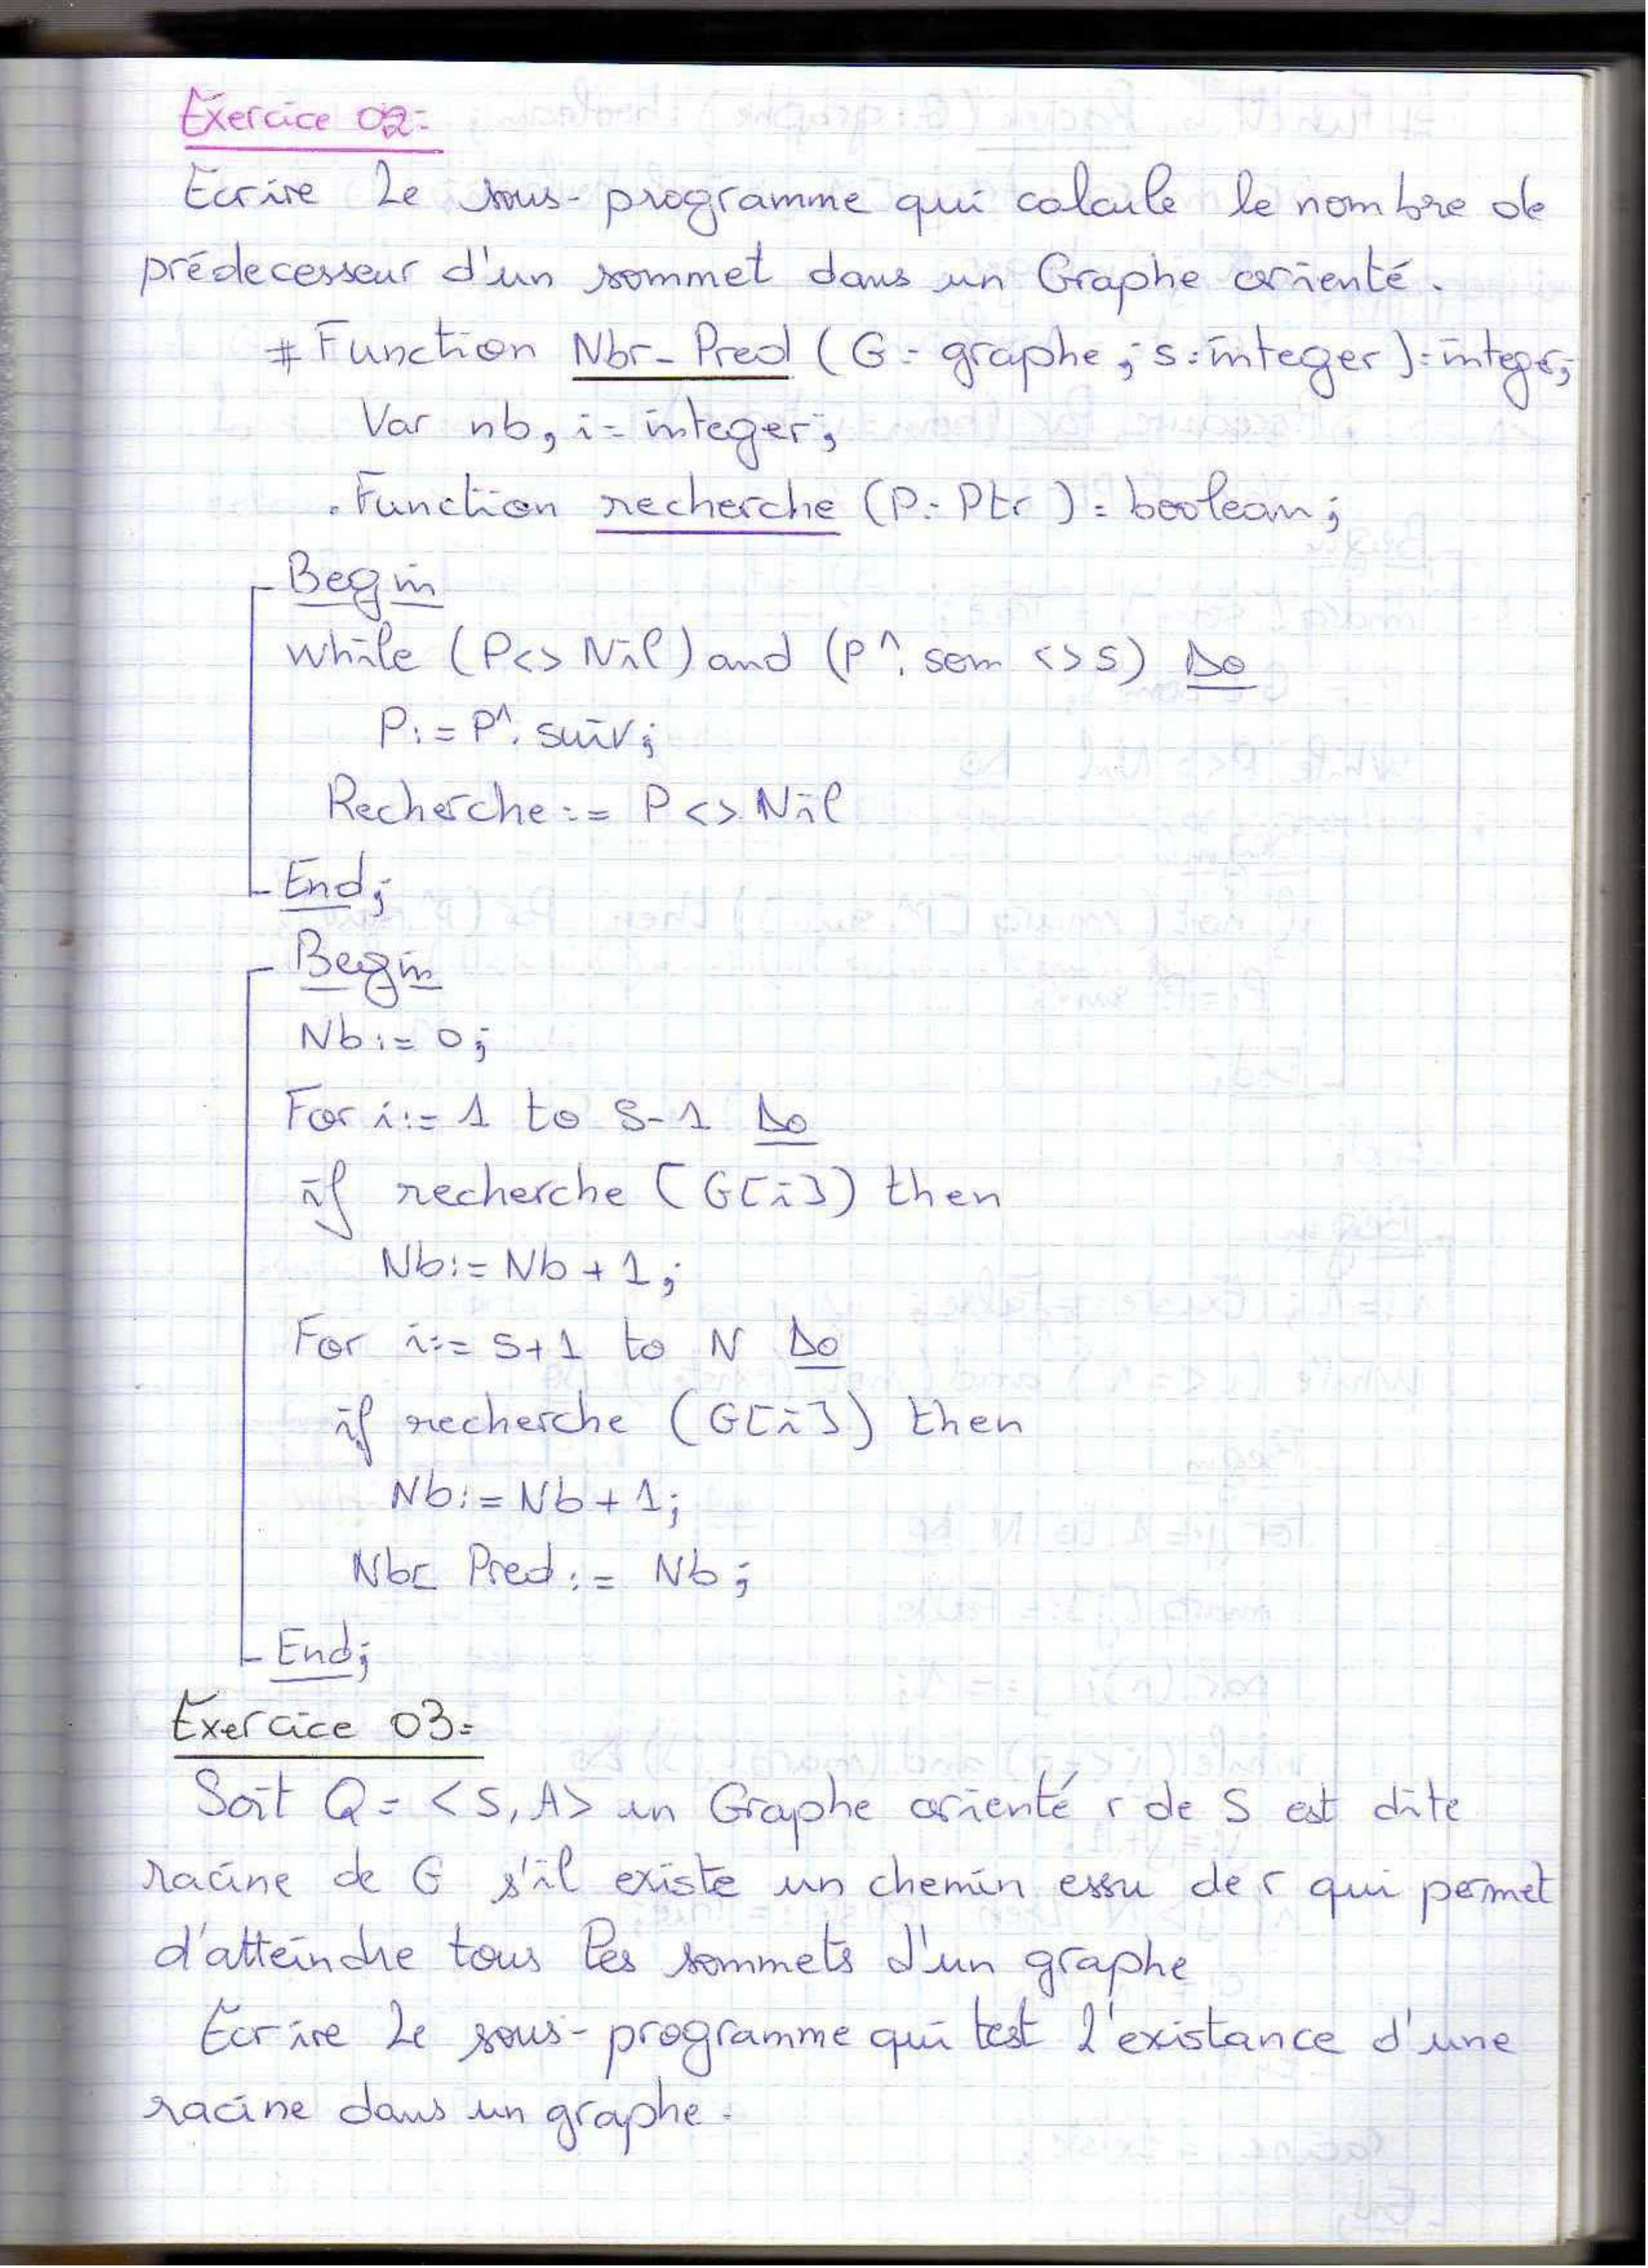 Exercice 02:
Ecrire Le sous-programme qui calcule le nombre de
prédecesseur d'un sommet dans un Graphe orienté.
# Function Nbr-Pred (G: graphe; s: integer): integer;
Var nb, i: integer;
. Function recherche (P: Ptr): boolean;
Begin
while (P<> Nil) and (P^. som <> S) Do
P:= P^. suiv;
Recherche:= P <> Nil
End;
Begin
Nb:= 0;
For i:= 1 to S-1 Do
if recherche (G[i]) then
Nb:= Nb + 1;
For i:= S+1 to N Do
if recherche (G[i]) then
Nb:= Nb + 1;
Nbr_Pred:= Nb;
End;
Exercice 03:
Soit Q = <S, A> un Graphe orienté r de S est dite
racine de G s'il existe un chemin essu de r qui permet
d'atteindre tous les sommets d'un graphe
Ecrire Le sous-programme qui test l'existance d'une
racine dans un graphe.